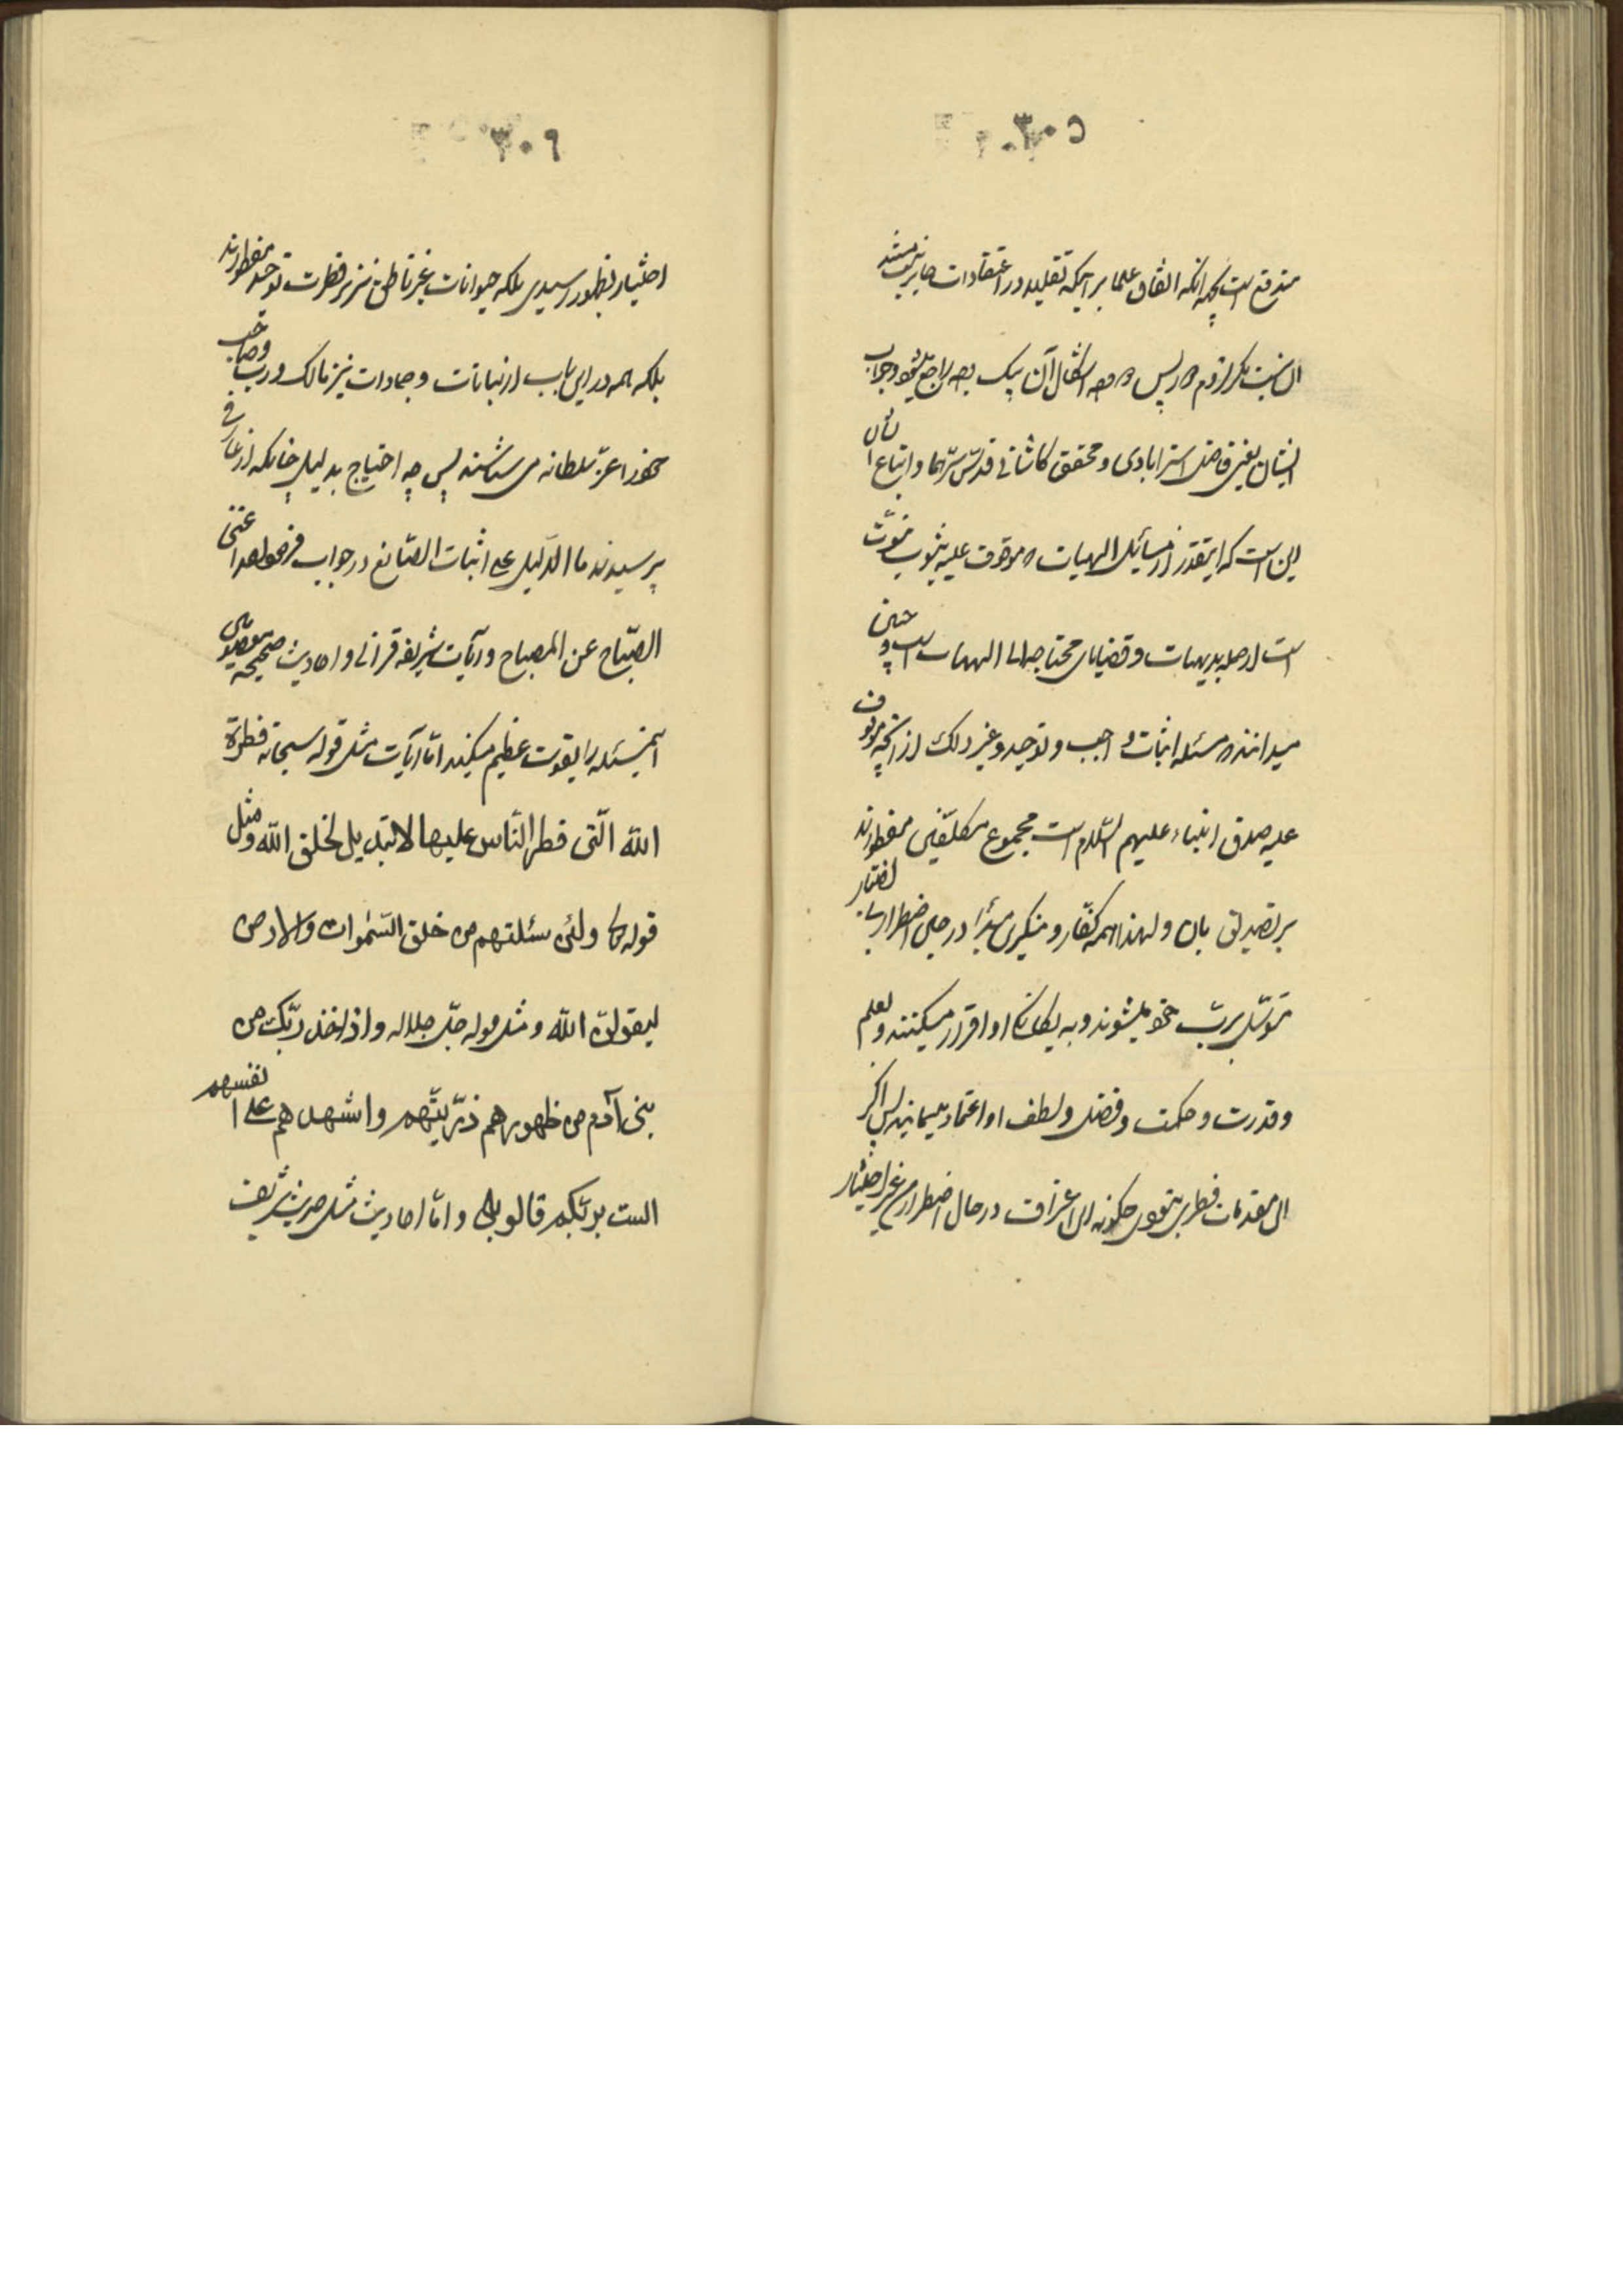 ۳۰۵
مندفع است بجهة آنکه اتفاق علما بر اینکه تقلید در اعتقادات جایز نیست
ایشان یعنی فاضل استرابادی و محقق کاشانی قدّس سرّهما و اتباع ایشان
این است که اینقدر از مسائل الهیات که موقوف علیه ثبوت نبوّت
است از جمله بدیهیات و قضایای محتاج الیها الهیات است و چنین
میدانند که مسئله اثبات واجب و توحید و غیر ذلک از آنچه موقوف
علیه صدق انبیاء علیهم السّلام است مجموع مکلّفین مفطورند
بر تصدیق بان و لهذا همه کفّار و منکرین مبدأ در حال اضطرار بی اختیار
متوسّل بربّ خود میشوند و به یگانگی او اقرار میکنند و بعلم
و قدرت و حکمت و فضل و لطف او اعتماد مینمایند پس اگر
این مقدمات فطری نبودی چگونه این اعتراف در حال اضطرار من غیر اختیار
۳۰۶
اختیار بظهور رسیدی بلکه حیوانات غیر ناطق نیز بر فطرت توحید مفطورند
بلکه همه در این باب از نباتات و جمادات نیز مالک و ربّ و صاحب
خود را عزّ سلطانه می شناسند پس چه احتیاج بدلیل چنانکه از عارفی
پرسیدند ما الدّلیل علی اثبات الصّانع در جواب فرمود لقد اغنی
الصّباح عن المصباح و آیات شریفه قرآنی و احادیث صحیحه معصومی
اینمسئله را بقوت عظیم میکنند امّا آیات مثل قوله سبحانه فطرة
اللّه الّتی فطر النّاس علیها لا تبدیل لخلق اللّه و مثل
قوله تعالی ولئن سئلتهم من خلق السّموات والارض
لیقولنّ اللّه و مثل قوله جلّ جلاله واذ اخذ ربّک من
بنی آدم من ظهورهم ذرّیتّهم واشهدهم علی انفسهم
الست بربّکم قالوا بلی و امّا احادیث مثل حدیث شریف